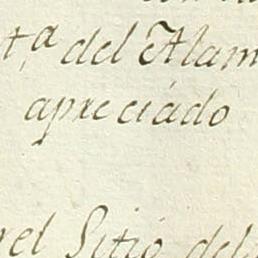 t,ª del Alam
apreciádo
el Sitio del